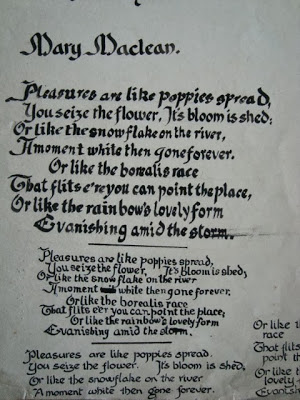 Mary Maclean.
Pleasures are like poppies spread,
You seize the flower, It's bloom is shed;
Or like the snowflake on the river,
A moment white then gone forever.
Or like the borealis race
That flits e're you can point the place,
Or like the rainbow's lovely form
Evanishing amid the storm.
Pleasures are like poppies spread,
You seize the flower, It's bloom is shed;
Or like the snow flake on the river
A moment white then gone forever,
Or like the borealis race
That flits e'er you can point the place;
Or like the rainbow's lovely form
Evanishing amid the storm.
Pleasures are like poppies spread.
You seize the flower. It's bloom is shed.
Or like the snowflake on the river
A moment white then gone forever.
Or like
race
That f
point th
Or like